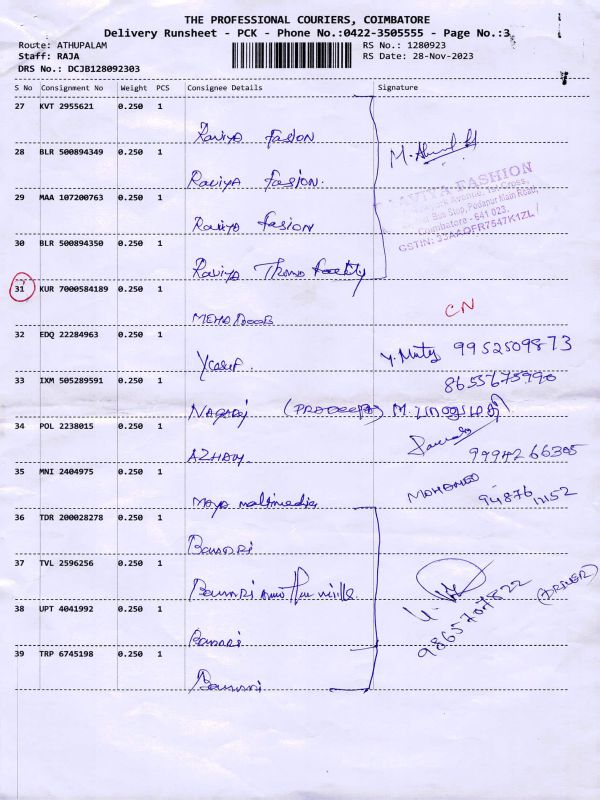 THE PROFESSIONAL COURIERS, COIMBATORE
Delivery Runsheet - PCK - Phone No.:0422-3505555 - Page No.:3
Route: ATHUPALAM
RS No.: 1280923
Staff: RAJA
RS Date: 28-Nov-2023
DRS No.: DCJB128092303
S No Consignment No Weight PCS Consignee Details Signature
27 KVT 2955621 0.250 1
Raviya Fasion
28 BLR 500894349 0.250 1
Raviya Fasion.
29 MAA 107200763 0.250 1
Raviya Fasion
30 BLR 500894350 0.250 1
Raviya
RAAVIYA FASHION
Avenue, 1st Cross,
Bus Stop, Podanur Main Road,
Coimbatore - 641 023.
31 KUR 7000584189 0.250 1
CN
32 EDQ 22284963 0.250 1
Yoasuf. 9952509873
33 IXM 505289591 0.250 1
8655675990
Nagaraj
34 POL 2238015 0.250 1
AZHAR 9994266305
35 MNI 2404975 0.250 1
MOHAMED
Maya multimedia
36 TDR 200028278 0.250 1
Bannari
37 TVL 2596256 0.250 1
Bannari
(DRIVER)
38 UPT 4041992 0.250 1
Bannari
39 TRP 6745198 0.250 1
Bannari